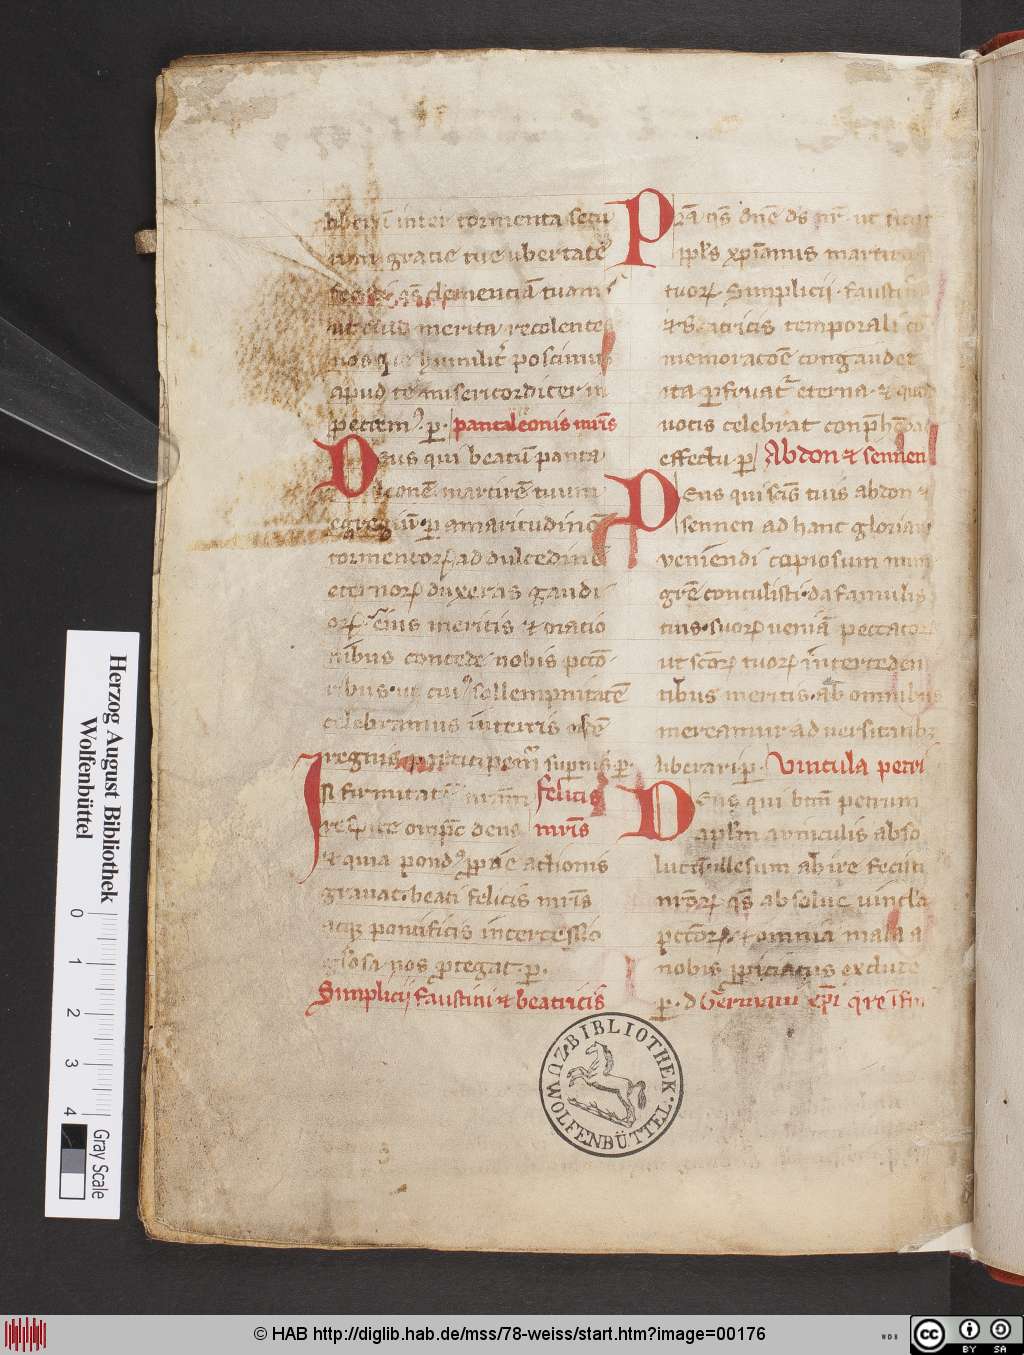 inter tormenta
gracie tue ubertatē
clemenciā tuam
ut eius merita recolentes
nos qui humilit poscimus
apud te misericorditer in
petrem᷒. p. pantaleonis mr̄is
Deus qui beatū panta
leonē martirē tuum
egregiū p amaritudinē
tormentoꝝ ad dulcedinē
eternoꝝ duxeras gaudi
oꝝ eius meritis et oratio
nibus concede nobis pctō
ribus ut cui᷒ sollempnitatē
celebramus
regnis supernis p.
In firmitatē nr̄am felicis
respice omp̄c deus mr̄is
et quia pond᷒ pprie actionis
gravat beati felicis mr̄is
atqꝫ pontificis intercessio
gl̄osa nos ꝓtegat. p.
Simplicij faustini et beatricis
Pr̄a qs̄ dnē ds̄ nr̄ ut sicut
ppl̄s xp̄ianus martirū
tuoꝝ Simplicii faustini
et Beatricis temporali cō
memoracōe congaudet
ita perfruat eterna et quod
votis celebrat conp̄hēdat
effectu p Abdon et sennen
Deus qui scīs tuis abdon et
sennen ad hanc gloriam
veniendi copiosum mun
grē contulisti da famulis
tuis suoꝝ veniā peccatoꝝ
ut scōꝝ tuoꝝ interceden
tibus meritis ab omnibus
mereamur adversitatibꝫ
liberari p. Vincula petri
Deus qui btm̄ petrum
apl̄m a vinculis abso
lutū illesum abire fecisti
nr̄oꝝ qs̄ absolve vincl̄a
pctōꝝ et omnia mala a
nobis ppiciatus exclude
p. d Germani ep̄i
BIBLIOTHEK ZU WOLFENBÜTTEL
Herzog August Bibliothek
Wolfenbüttel
0 1 2 3 4
Gray Scale
© HAB http://diglib.hab.de/mss/78-weiss/start.htm?image=00176
WDB
cc BY SA